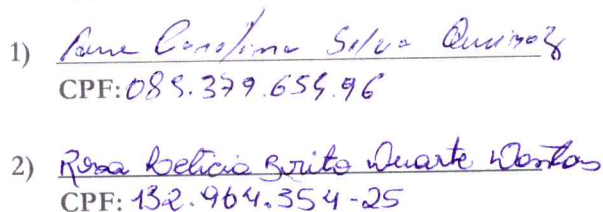 1) Carolina Silva Queiroz
CPF: 089.379.654.96
2) Rosa Leticia Brito Duarte Dantas
CPF: 132.964.354-25